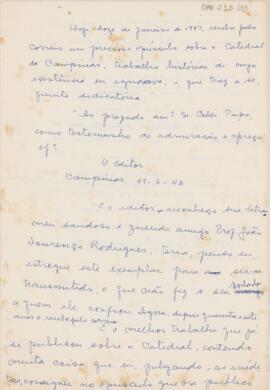 Hoje, doze de janeiro de 1987, recebo pelo
correio um precioso opúsculo sobre a Catedral
de Campinas, trabalho histórico de cuja
existência eu ignorava, e que traz a se-
guinte dedicatória
"Ao prezado amº Sr. Celso Pupo,
como testemunho de admiração e apreço
of.
O Editor
Campinas, 11-6-42
E o editor - reconheço sua letra
meu saudoso e querido amigo Prof. João
Lourenço Rodrigues, teria, penso eu,
entregue este exemplar para ser-me
transmitido, o que não fez o seu portador
a quem ele confiou. Agora, depois quarenta e sete
anos o recebo pelo correio
É o melhor trabalho que já
se publicou sobre a Catedral, contendo
muita coisa que eu, julgando
no opúsculo que ora publico